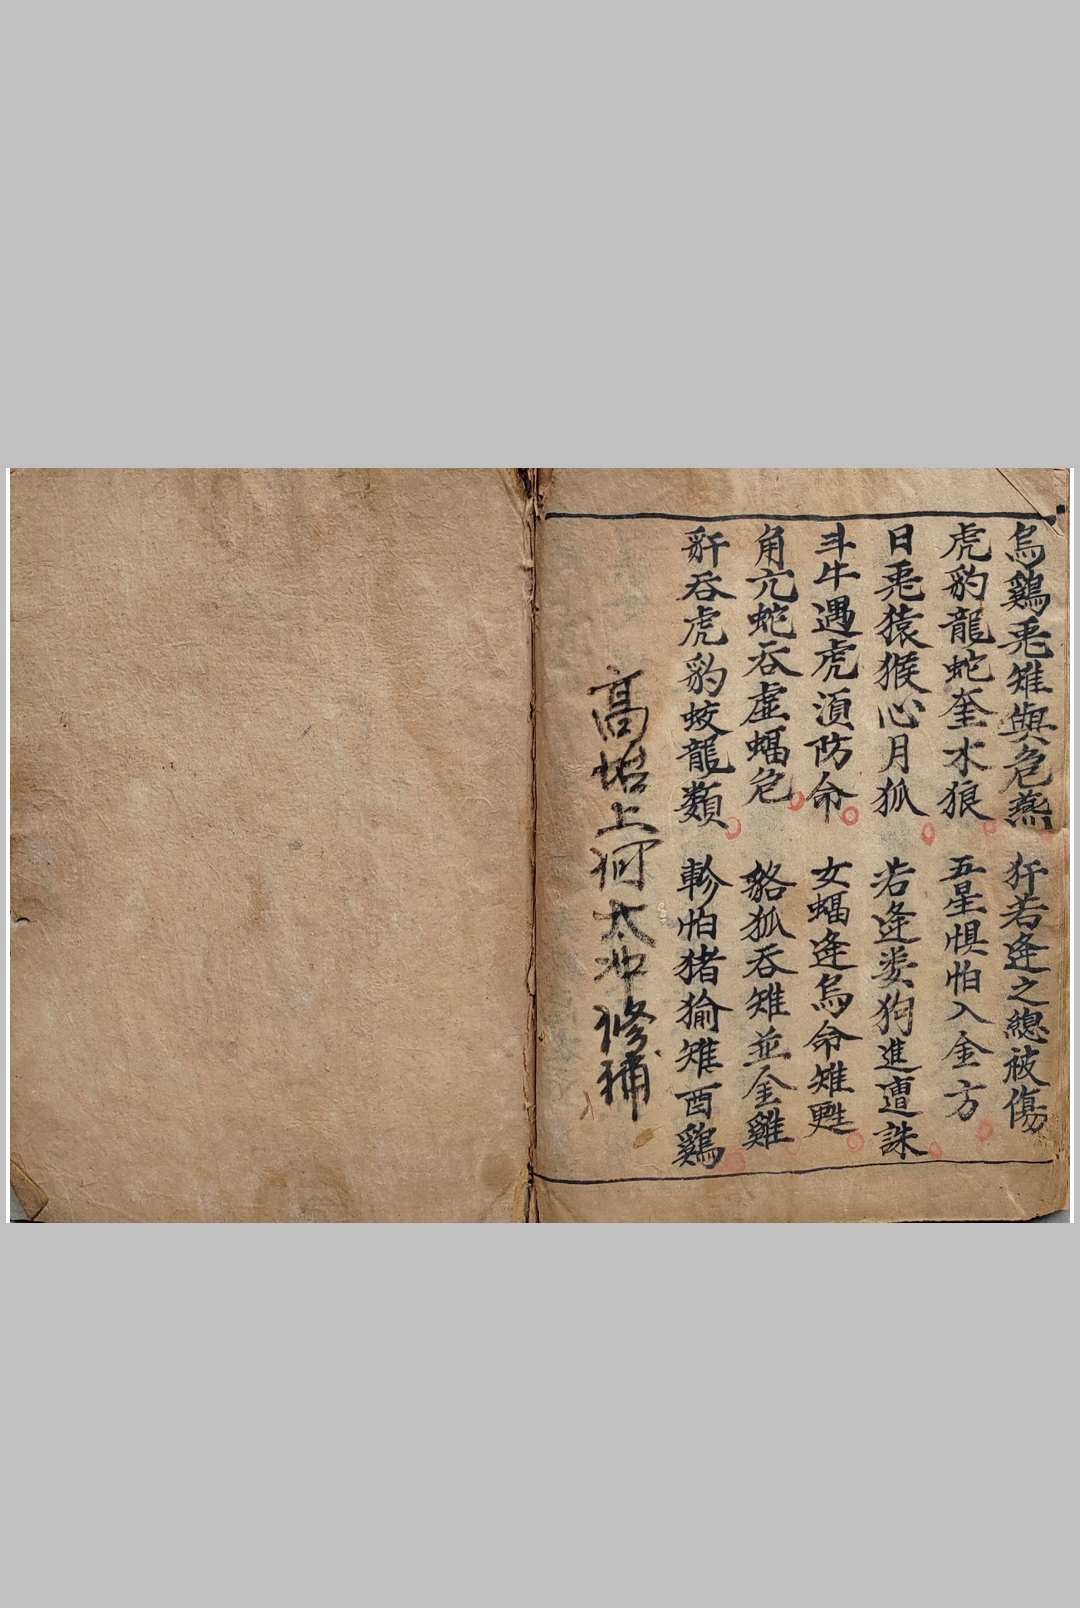 烏鷄兎雉與危燕 犴若逢之總被傷
虎豹龍蛇奎水狼 五星惧怕入金方
日兎猿猴心月狐 若逢娄狗進遭誅
斗牛遇虎湏防命 女蝠逢烏命难甦
角亢蛇吞虛蝠危 貉狐吞雉並金雞
犴吞虎豹蛟龍類 軫怕猪㺄雉酉鷄
高 上河太冲修補